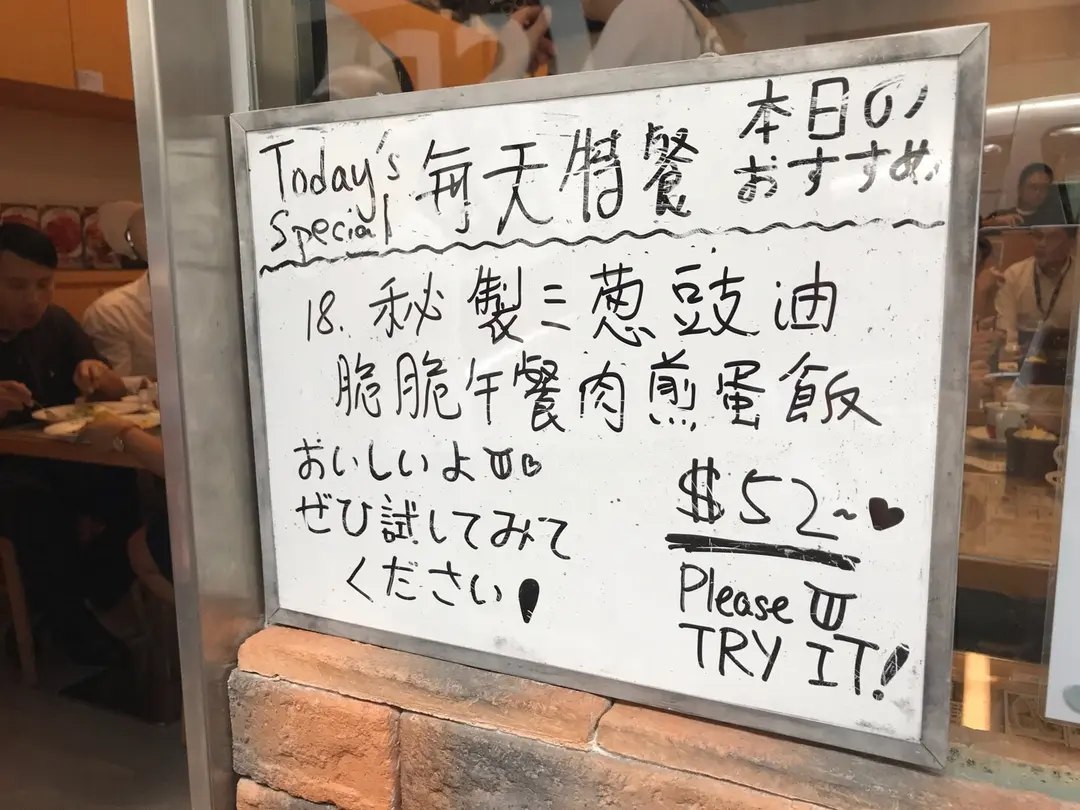 Today's
Special
毎天特餐
本日の
おすすめ。
18. 秘製二葱豉油
脆脆午餐肉煎蛋飯
おいしいよ
ぜひ試してみて
ください!
$52~
Please
TRY IT!